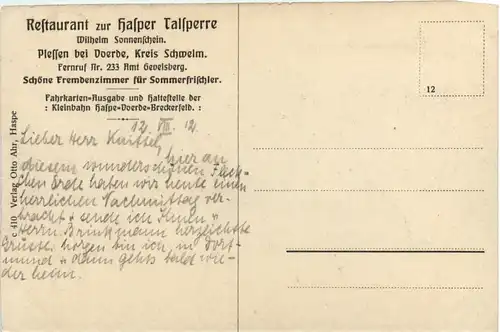 Restaurant zur Hasper Talsperre
Wilhelm Sonnenschein.
Plessen bei Voerde, Kreis Schwelm.
Fernruf Nr. 233 Amt Gevelsberg.
Schöne Fremdenzimmer für Sommerfrischler.
Fahrkarten-Ausgabe und Haltestelle der
: Kleinbahn Haspe-Voerde-Breckerfeld. :
12. VIII. 12.
Lieber Herr Knittel,
hier an
diesem wunderschönen Fleck-
chen Erde haben wir heute einen
herrlichen Nachmittag ver-
bracht u. sende ich Ihnen u.
Herrn Brinkmann herzlichste
Grüsse. Morgen bin ich in Dort-
mund u. dann gehts bald wie-
der heim.
c 410 Verlag Otto Ahr, Haspe
12